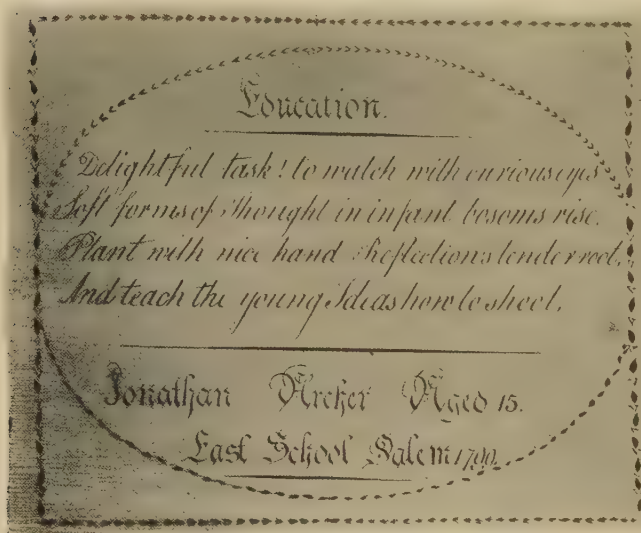 Education.
Delightful task! to watch with curious eyes
Soft forms of Thought in infant bosoms rise.
Plant with nice hand Reflections tender root,
And teach the young Ideas how to shoot.
Jonathan Archer Aged 15.
East School Salem